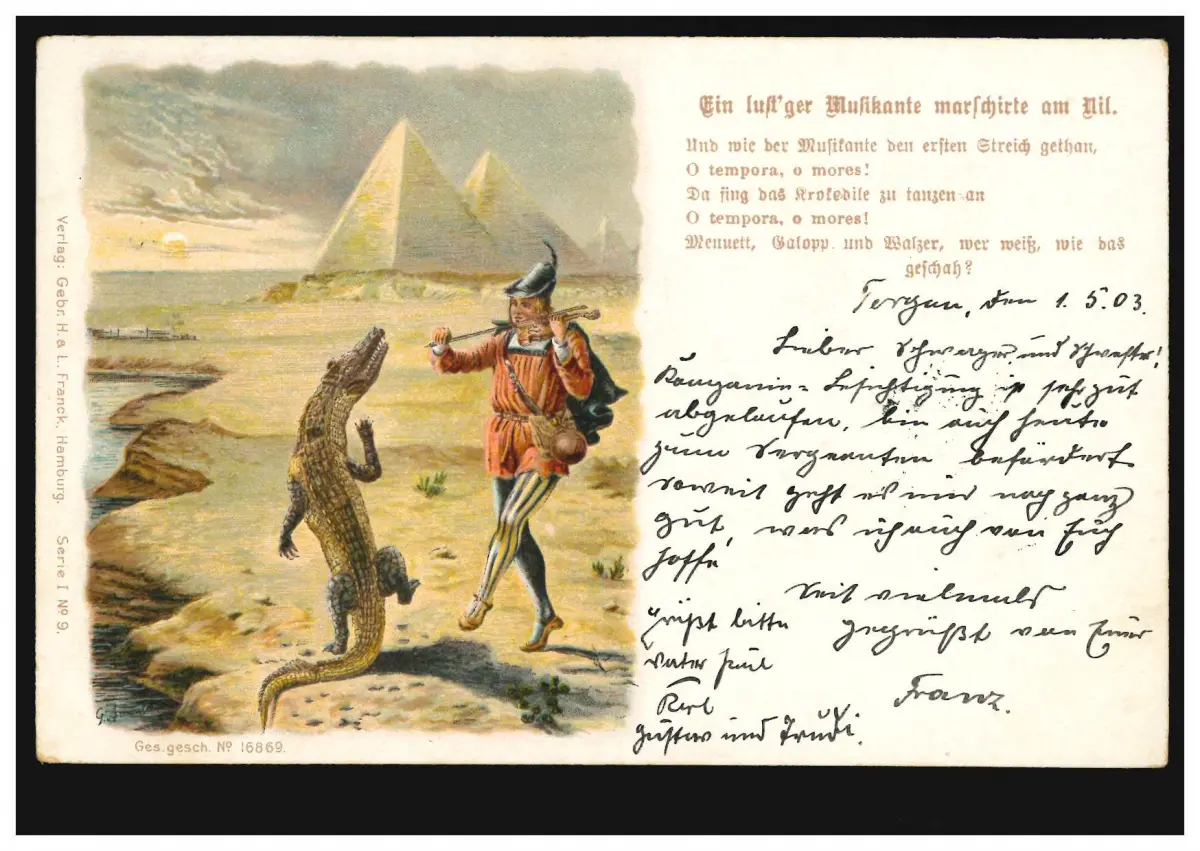 Ein lust'ger Musikante marschirte am Nil.
Und wie der Musikante den ersten Streich gethan,
O tempora, o mores!
Da fing das Krokodile zu tanzen an
O tempora, o mores!
Menuett, Galopp und Walzer, wer weiß, wie das
geschah?
Torgau, den 1.5.03.
Lieber Schwager und Schwester!
Kompanie = Besichtigung ist sehr gut
abgelaufen, bin auch heute
zum Sergeanten befördert
soweit geht es mir noch ganz
gut, was ich auch von Euch
hoffe
Seit vielmals
gegrüßt von Euer
Franz.
Grüßt bitte
Vater
Karl
Gustav und Trudi.
Verlag: Gebr. H. & L. Franck, Hamburg. Serie I Nº 9.
Ges. gesch. Nº 16869.